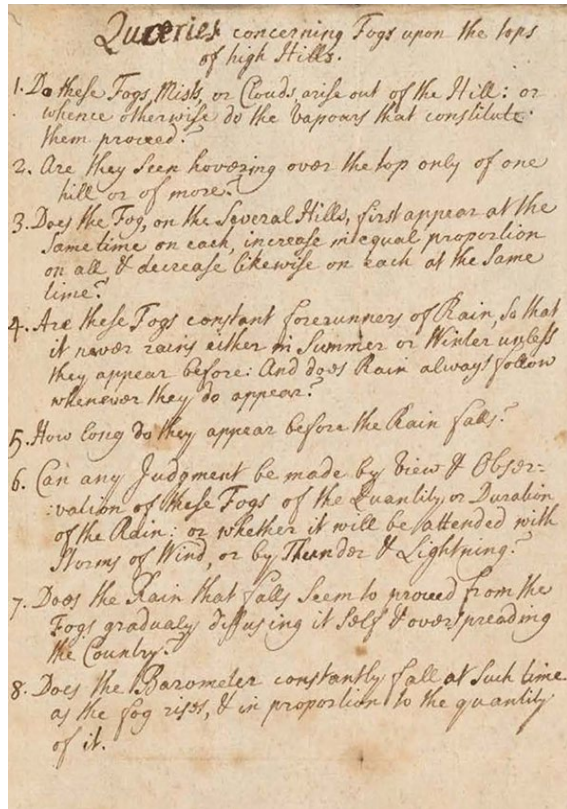 Queries concerning Fogs upon the tops
of high Hills.
1. Do these Fogs, Mists, or Clouds arise out of the Hill: or
whence otherwise do the Vapours that constitute
them proceed?
2. Are they seen hovering over the top only of one
hill or of more?
3. Does the Fog, on the Several Hills, first appear at the
Same time on each, increase in equal proportion
on all & decrease likewise on each at the Same
time?
4. Are these Fogs constant forerunners of Rain, So that
it never rains either in Summer or Winter unless
they appear before: And does Rain always follow
whenever they do appear?
5. How long do they appear before the Rain falls?
6. Can any Judgment be made by View & Obser=
:vation of these Fogs of the Quantity or Duration
of the Rain: or whether it will be attended with
Storms of Wind, or by Thunder & Lightning?
7. Does the Rain that falls Seem to proceed from the
Fogs gradualy diffusing it Self & overspreading
the Country?
8. Does the Barometer constantly fall at Such time
as the fog rises, & in proportion to the quantity
of it.